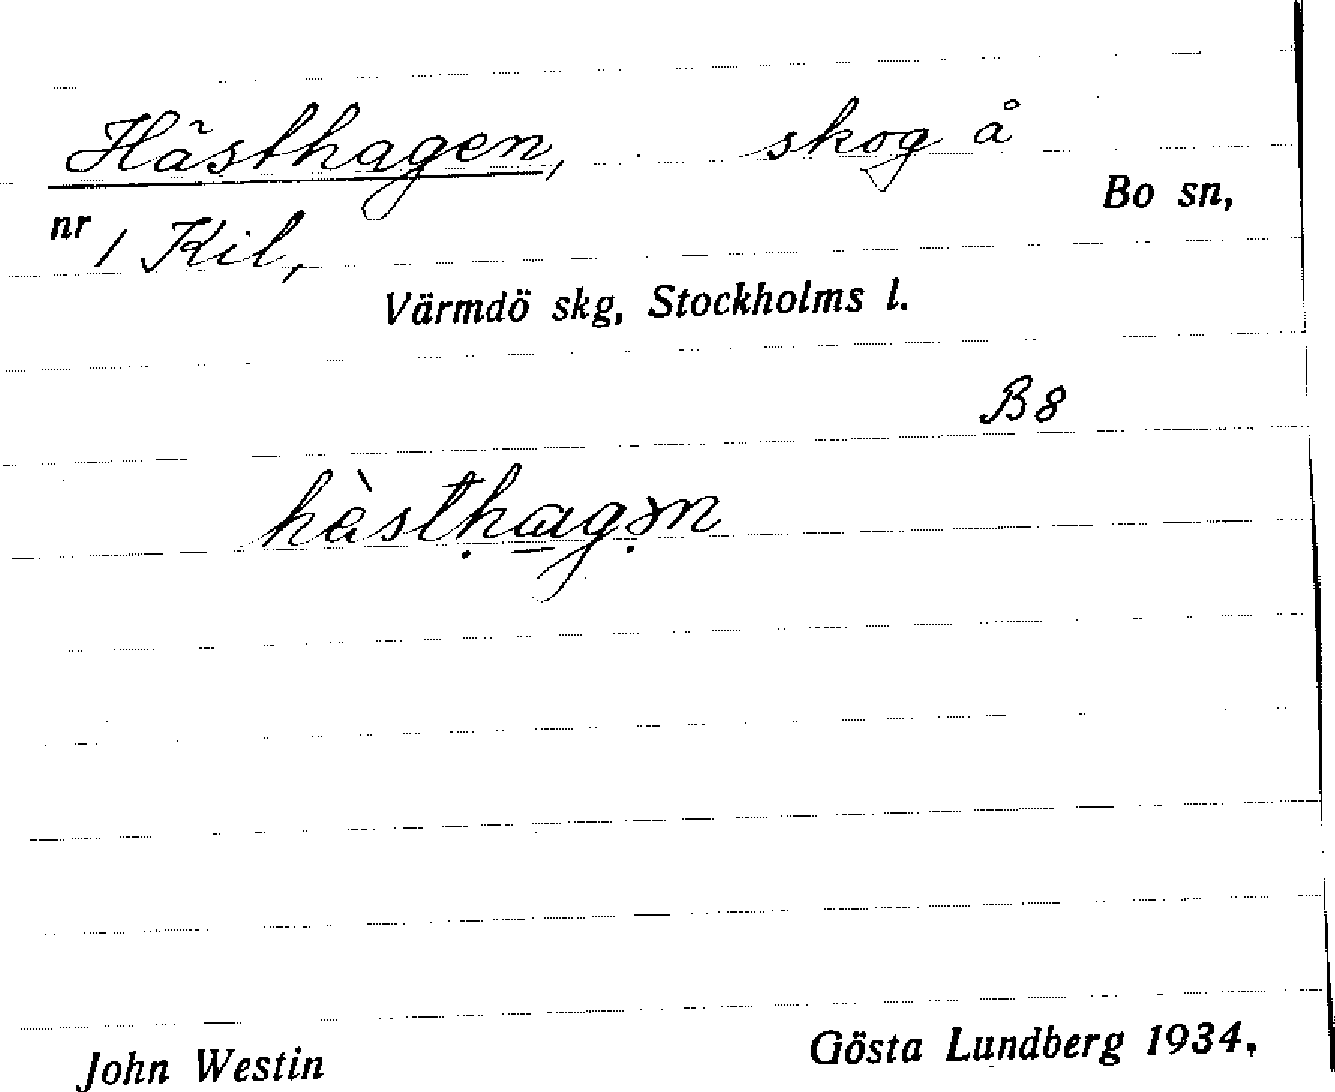 Hästhagen, skog å
Bo sn,
nr 1 Kil,
Värmdö skg, Stockholms l.
B8
hàsṭhαgə̣n
John Westin
Gösta Lundberg 1934,